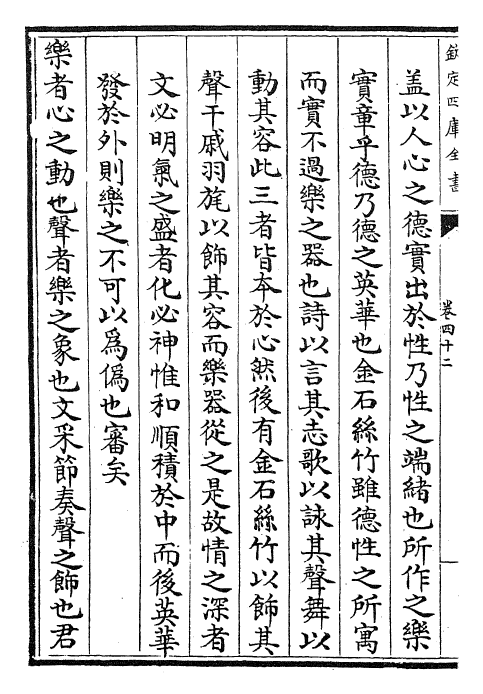 欽定四庫全書
卷四十二
盖以人心之德實出於性乃性之端緒也所作之樂
實章乎德乃德之英華也金石絲竹雖德性之所寓
而實不過樂之器也詩以言其志歌以詠其聲舞以
動其容此三者皆本於心然後有金石絲竹以飾其
聲干戚羽旄以飾其容而樂器從之是故情之深者
文必明氣之盛者化必神惟和順積於中而後英華
發於外則樂之不可以為偽也審矣
樂者心之動也聲者樂之象也文采節奏聲之飾也君